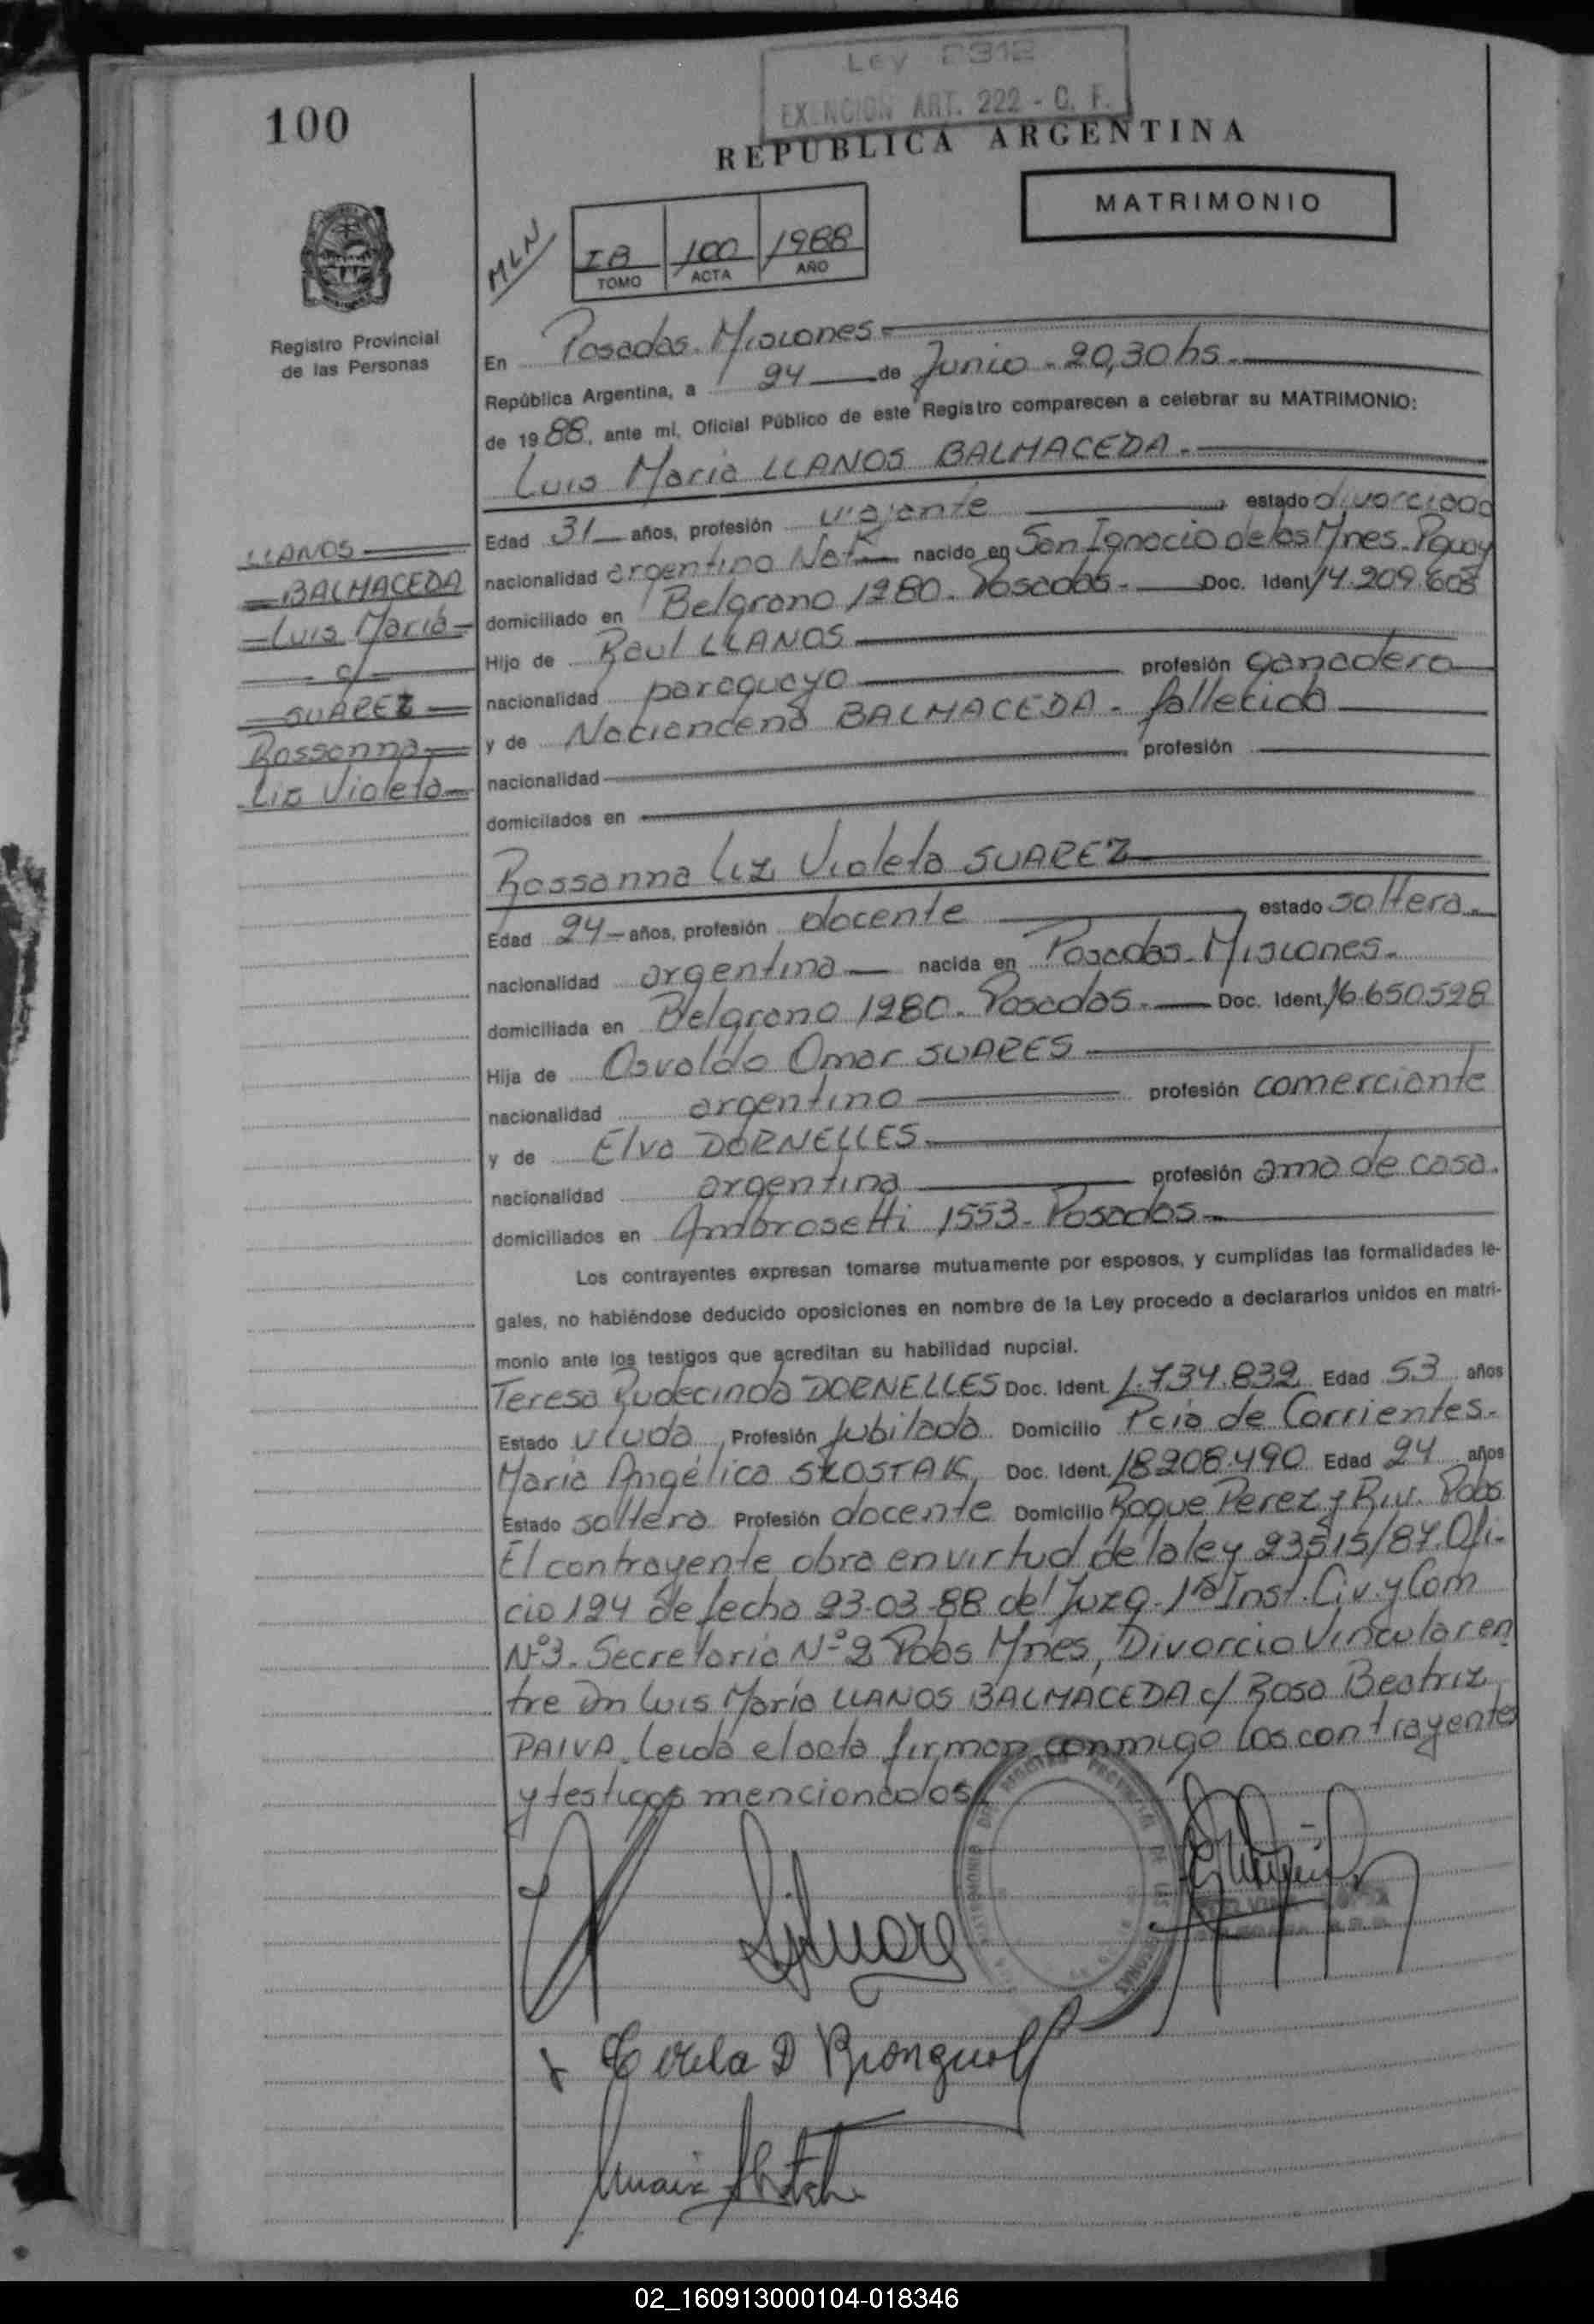 Ley 2312
EXENCION ART. 222 - C. F.
100
REPUBLICA ARGENTINA
MATRIMONIO
MLN
IB 100 1988
TOMO ACTA AÑO
Registro Provincial
de las Personas
En Posadas. Misiones
República Argentina, a 24 de Junio - 20,30 hs.
de 1988, ante mí, Oficial Público de este Registro comparecen a celebrar su MATRIMONIO:
Luis María LLANOS BALMACEDA.
Edad 31 años, profesión viajante estado divorciado
nacionalidad argentino Nat. nacido en San Ignacio de las Mnes. Pguay
domiciliado en Belgrano 1280. Posadas. Doc. Ident 14.209.608
Hijo de Raul LLANOS
nacionalidad paraguayo profesión ganadero
y de Naciancena BALMACEDA - fallecida
nacionalidad profesión
domiciliados en
LLANOS
BALMACEDA
Luis María
c/
SUAREZ
Rossanna
Liz Violeta
Rossanna Liz Violeta SUAREZ
Edad 24 años, profesión docente estado soltera.
nacionalidad argentina nacida en Posadas. Misiones.
domiciliada en Belgrano 1280. Posadas. Doc. Ident. 16.650.528
Hija de Osvaldo Omar SUARES
nacionalidad argentino profesión comerciante
y de Elva DORNELLES
nacionalidad argentina profesión ama de casa.
domiciliados en Ambrosetti 1553. Posadas
Los contrayentes expresan tomarse mutuamente por esposos, y cumplidas las formalidades le-
gales, no habiéndose deducido oposiciones en nombre de la Ley procedo a declararlos unidos en matri-
monio ante los testigos que acreditan su habilidad nupcial.
Teresa Rudecinda DORNELLES Doc. Ident. 1.734.832 Edad 53 años
Estado viuda, Profesión Jubilada Domicilio Pcia de Corrientes.
María Angélica SKOSTAK, Doc. Ident. 18208.490 Edad 24 años
Estado soltera Profesión docente Domicilio Roque Perez y Riv. Pdas
El contrayente obra en virtud de la ley 23515/87. Ofi-
cio 124 de fecha 23-03-88 del Juzg. 1ª Inst. Civ. y Com
Nº3. Secretaria Nº2 Pdas Mnes, Divorcio Vincular en
tre Dn Luis María LLANOS BALMACEDA c/ Rosa Beatriz
PAIVA. Leida el acta firman conmigo los contrayentes
y testigos mencionados.
REGISTRO PROVINCIAL DE LAS PERSONAS
02_160913000104-018346